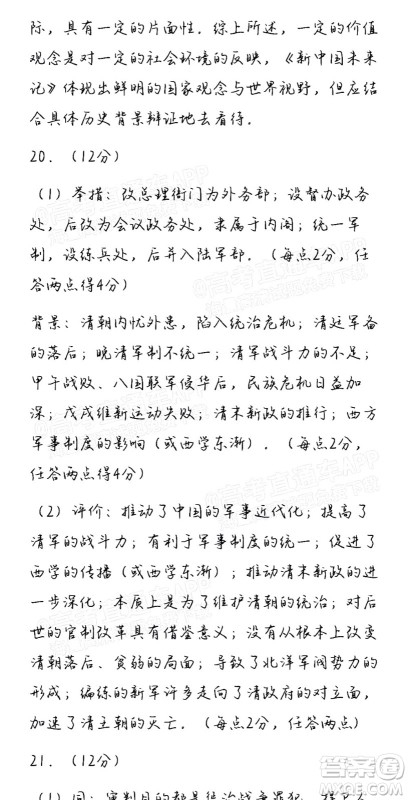 际，具有一定的片面性．综上所述，一定的价值
观念是对一定的社会环境的反映，《新中国未来
记》体现出鲜明的国家观念与世界视野，但应结
合具体历史背景辩证地去看待．
20．（12分）
（1）举措：改总理衙门为外务部；设督办政务
处，后改为会议政务处，隶属于内阁；统一军
制，设练兵处，后并入陆军部．（每点2分，任
答两点得4分）
背景：清朝内忧外患，陷入统治危机；清廷军备
的落后；晚清军制不统一；清军战斗力的不足；
甲午战败、八国联军侵华后，民族危机日益加
深；戊戌维新运动失败；清末新政的推行；西方
军事制度的影响（或西学东渐）．（每点2分，
任答两点得4分）
（2）评价：推动了中国的军事近代化；提高了
清军的战斗力；有利于军事制度的统一；促进了
西学的传播（或西学东渐）；推动清末新政的进
一步深化；本质上是为了维护清朝的统治；对后
世的官制改革具有借鉴意义；没有从根本上改变
清朝落后、贫弱的局面；导致了北洋军阀势力的
形成；编练的新军许多走向了清政府的对立面，
加速了清王朝的灭亡．（每点2分，任答两点）
21．（12分）